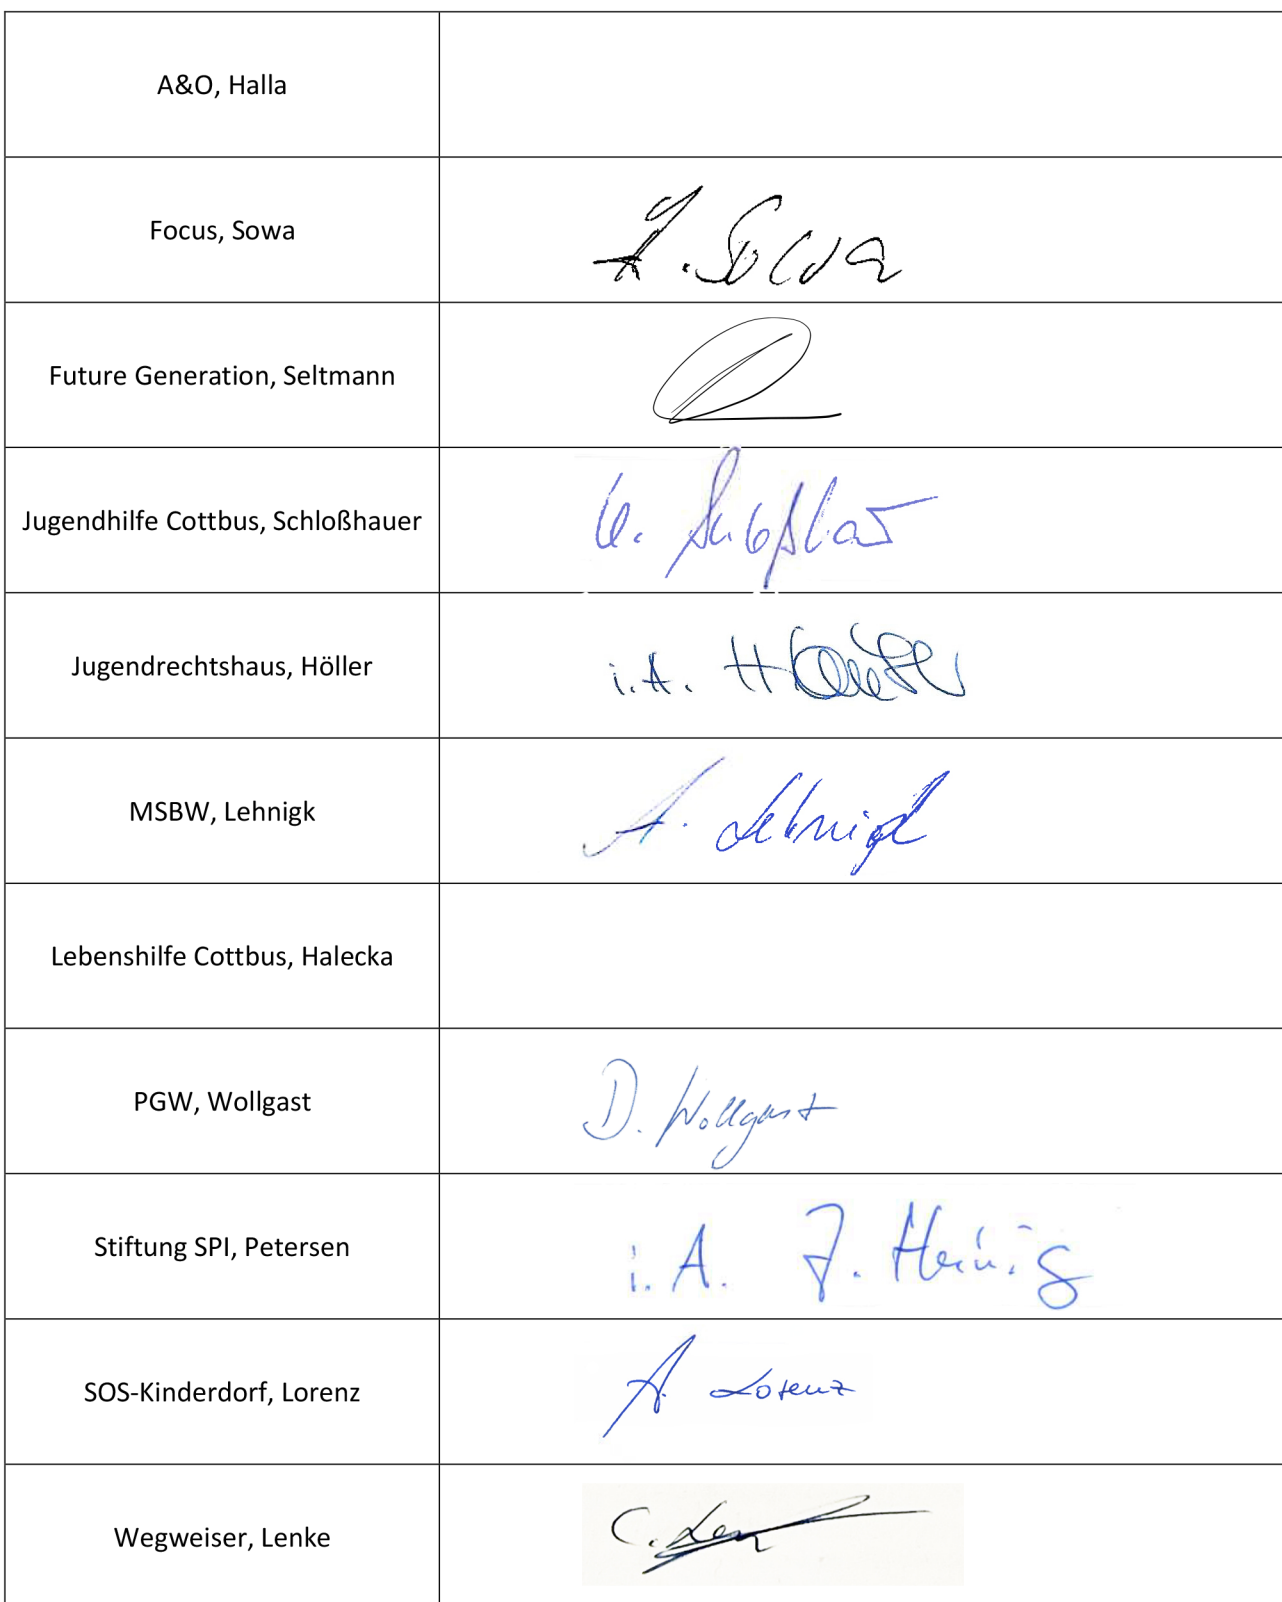 A&O, Halla
Focus, Sowa
. Sowa
Future Generation, Seltmann
Jugendhilfe Cottbus, Schloßhauer
Jugendrechtshaus, Höller
i.A.
MSBW, Lehnigk
A. Lehnigk
Lebenshilfe Cottbus, Halecka
PGW, Wollgast
D. Wollgast
Stiftung SPI, Petersen
i.A. J. Heinig
SOS-Kinderdorf, Lorenz
A. Lorenz
Wegweiser, Lenke
C.